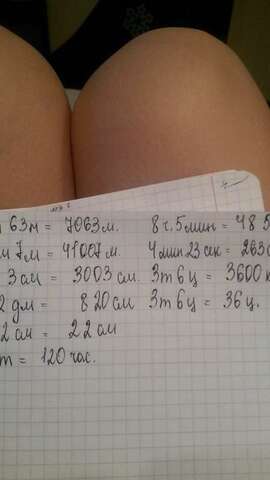 63м = 7063м. 8 ч. 5 мин = 48 5
м 7м = 41007м. 4 мин 23 сек = 263 с
3 см = 3003 см. 3т 6ц = 3600 к
2 дм = 820 см 3т 6ц = 36 ц.
2 см = 22 см
т = 120 час.